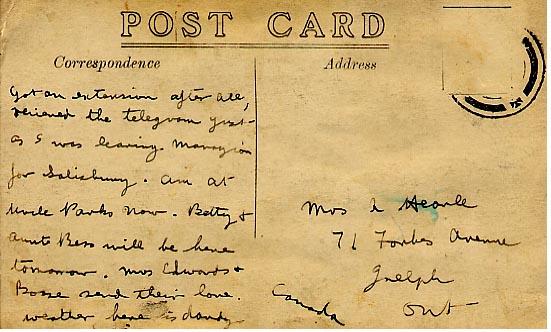 POST CARD
Correspondence
Address
Got an extension after all,
recieved the telegram just
as I was leaving
for Salisbury. am at
Uncle Parks now. Betty &
Aunt Bess will be here
tomorrow. Mrs Edwards &
send their love.
weather here is dandy
Mrs Hearle
71 Forbes Avenue
Guelph
Ont
Canada